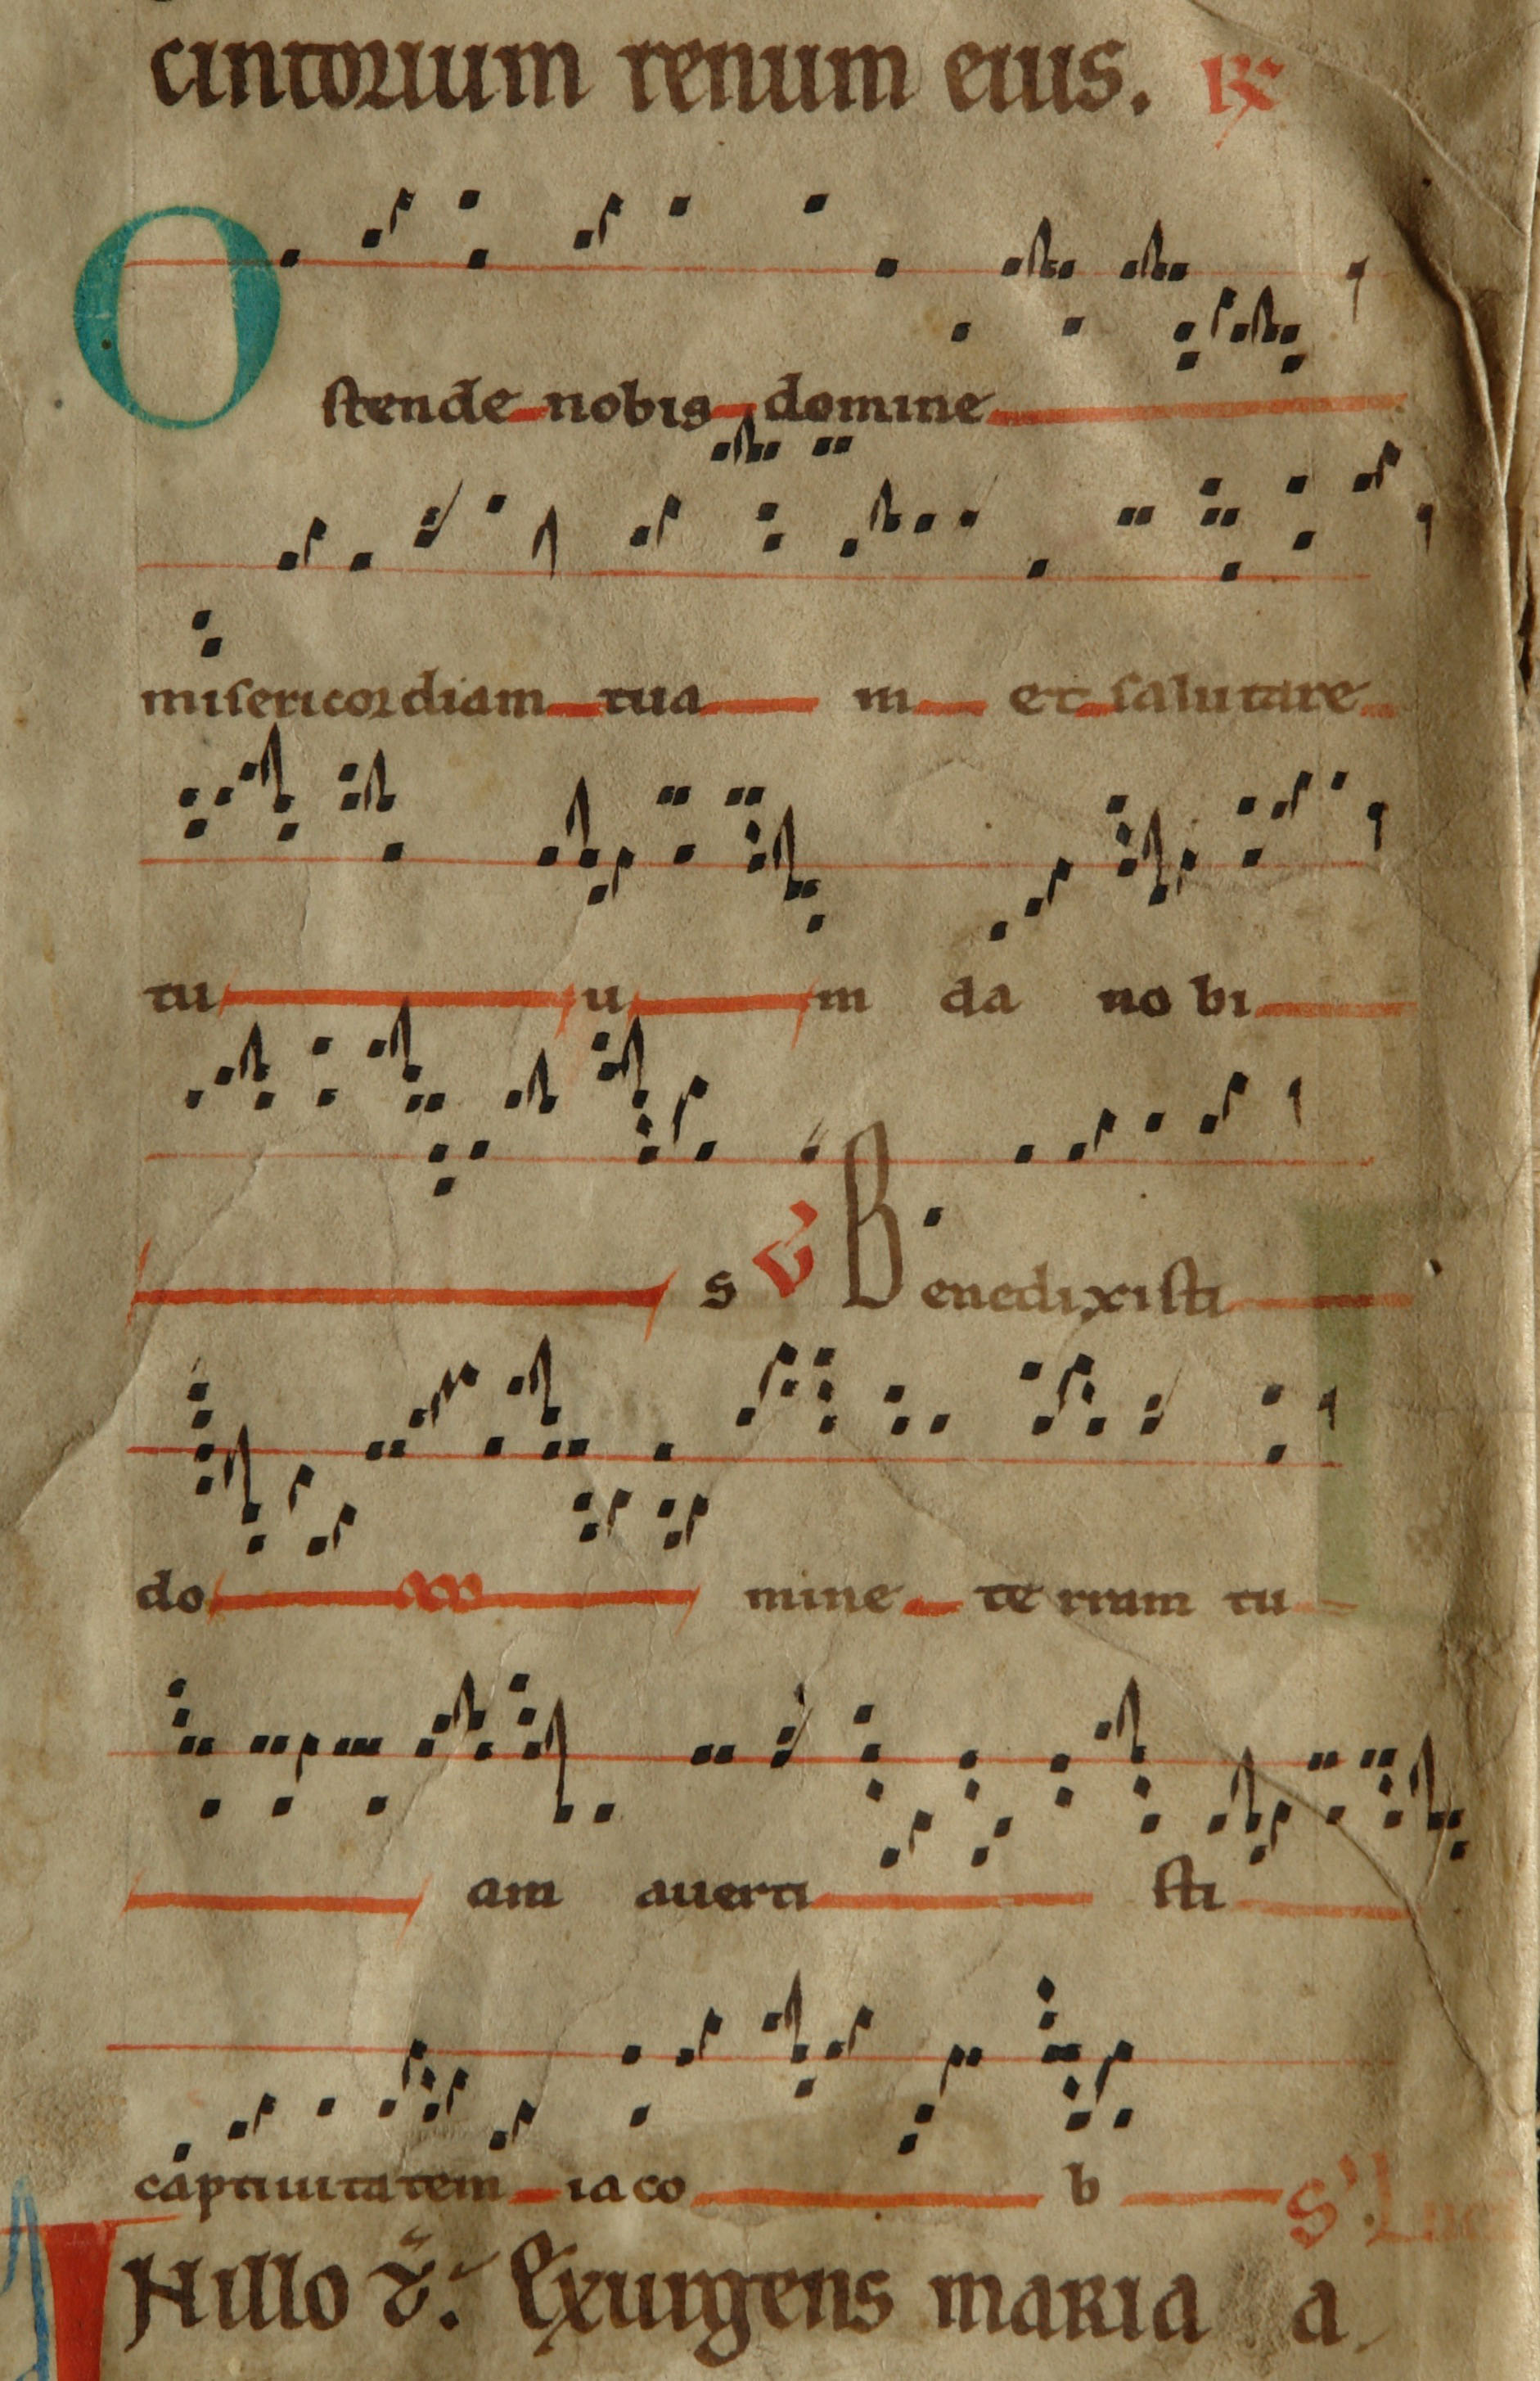 cintorium renum eius. R
Ostende nobis domine
misericordiam tua m et salutare
tu u m da no bi
s V Benedixisti
do mine te rram tu
am auerti sti
captiuitatem iaco b S' Luc
IN illo t̄. Exurgens maria a